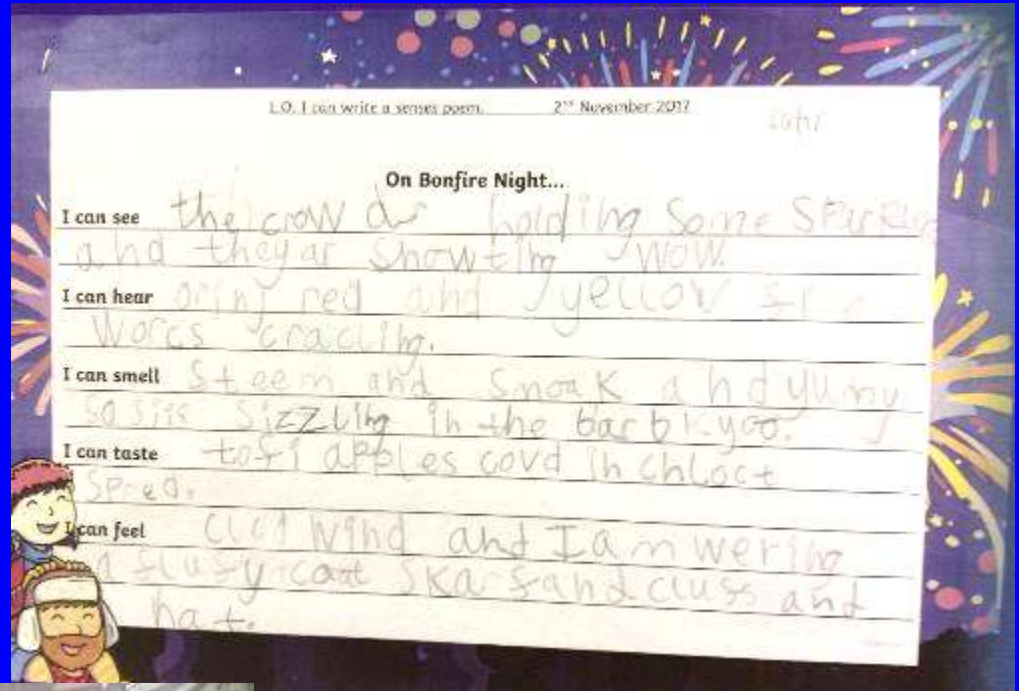 L.O. I can write a senses poem. 2nd November 2017
On Bonfire Night...
I can see the crow ds holding some
and they ar showting wow.
I can hear orinj red and yellow fir
worcs cracling.
I can smell steem and smoak and yumy
sizzling in the barbkyoo.
I can taste tofi apples covd in chloct
spred.
I can feel wind and I am wering
a flufy coat skarf and and
hat.